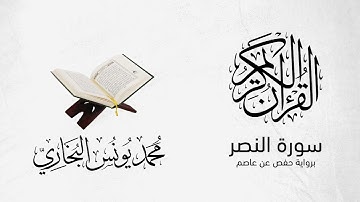 القرآن الكريم
سورة النصر
برواية حفص عن عاصم
محمد يونس البخاري